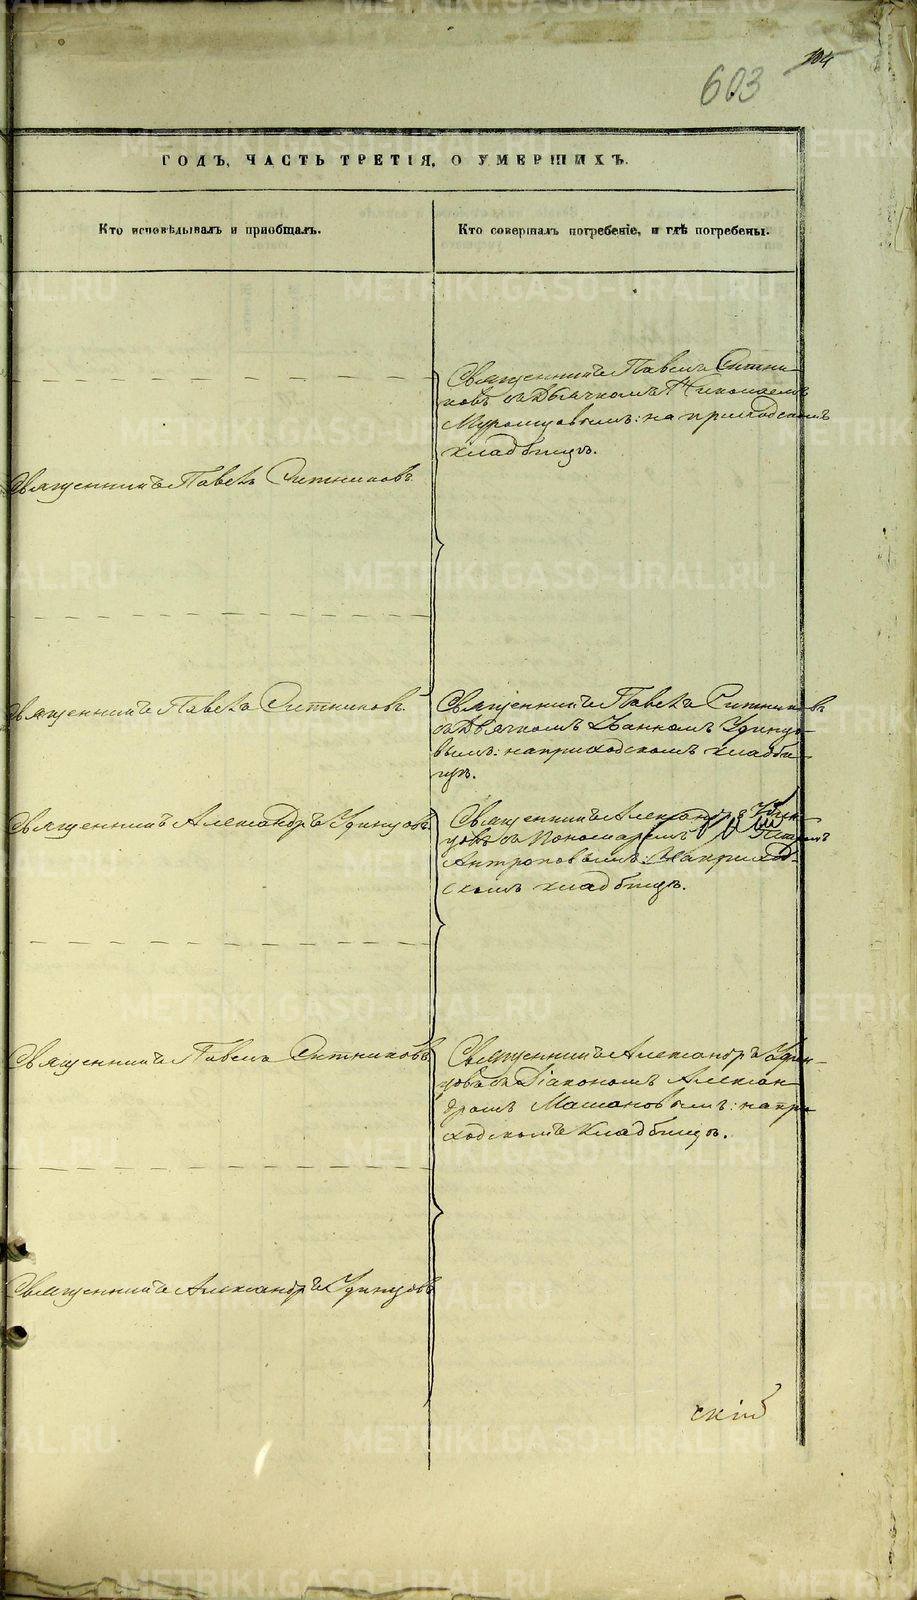 104
603
ГОДЪ, ЧАСТЬ ТРЕТІЯ, О УМЕРШИХЪ.
Кто исповѣдывалъ и пріобщалъ.
Кто совершалъ погребеніе, и гдѣ погребены.
Священникъ Павелъ Ситни-
ковъ съ Дьячкомъ Николаемъ
Муромцовымъ: на приходскомъ
кладбищѣ.
Священникъ Павелъ Ситниковъ.
Священникъ Павелъ Ситниковъ.
Священникъ Павелъ Ситниковъ
съ Дьячкомъ Іоанномъ Удинцо-
вымъ: на приходскомъ кладби-
щѣ.
Священникъ Александръ Удинцовъ.
Священникъ Александръ Удин-
цовъ съ Пономаремъ
Антроповымъ: на приход-
скомъ кладбищѣ.
Священникъ Павелъ Ситниковъ
Священникъ Александръ Удин-
цовъ съ Діакономъ Алексан-
дромъ : на при-
ходскомъ кладбищѣ.
Священникъ Александръ Удинцовъ
METRIKI.GASO-URAL.RU